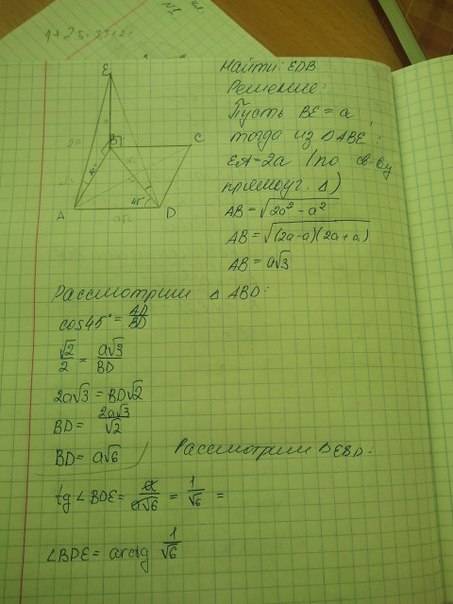 Найти: EDB
Решение:
Пусть BE = a
тогда из △ABE:
EA=2a (по св-ву
прямоуг. △)
AB = √2a² - a²
AB = √(2a-a)(2a+a)
AB = a√3
E
B
C
A
D
45°
Рассмотрим △ ABD:
cos45° = AD/BD
√2/2 = a√3/BD
2a√3 = BD√2
BD = 2a√3/√2
BD = a√6
Рассмотрим △EBD:
tg∠BDE = a/a√6 = 1/√6 =
∠BDE = arctg 1/√6